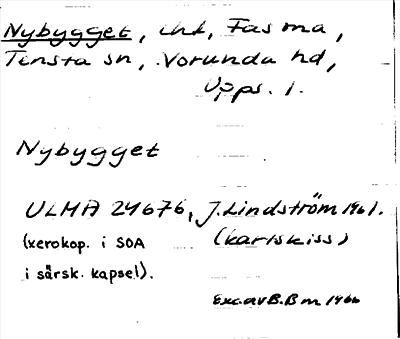 Nybygget, ekt, Fasma,
Tensta sn, Norunda hd,
Upps. l.
Nybygget
ULMA 24676, J. Lindström 1961.
(xerokop. i SOA (kartskiss)
i särsk. kapsel).
Exc. av B. Bm 1966